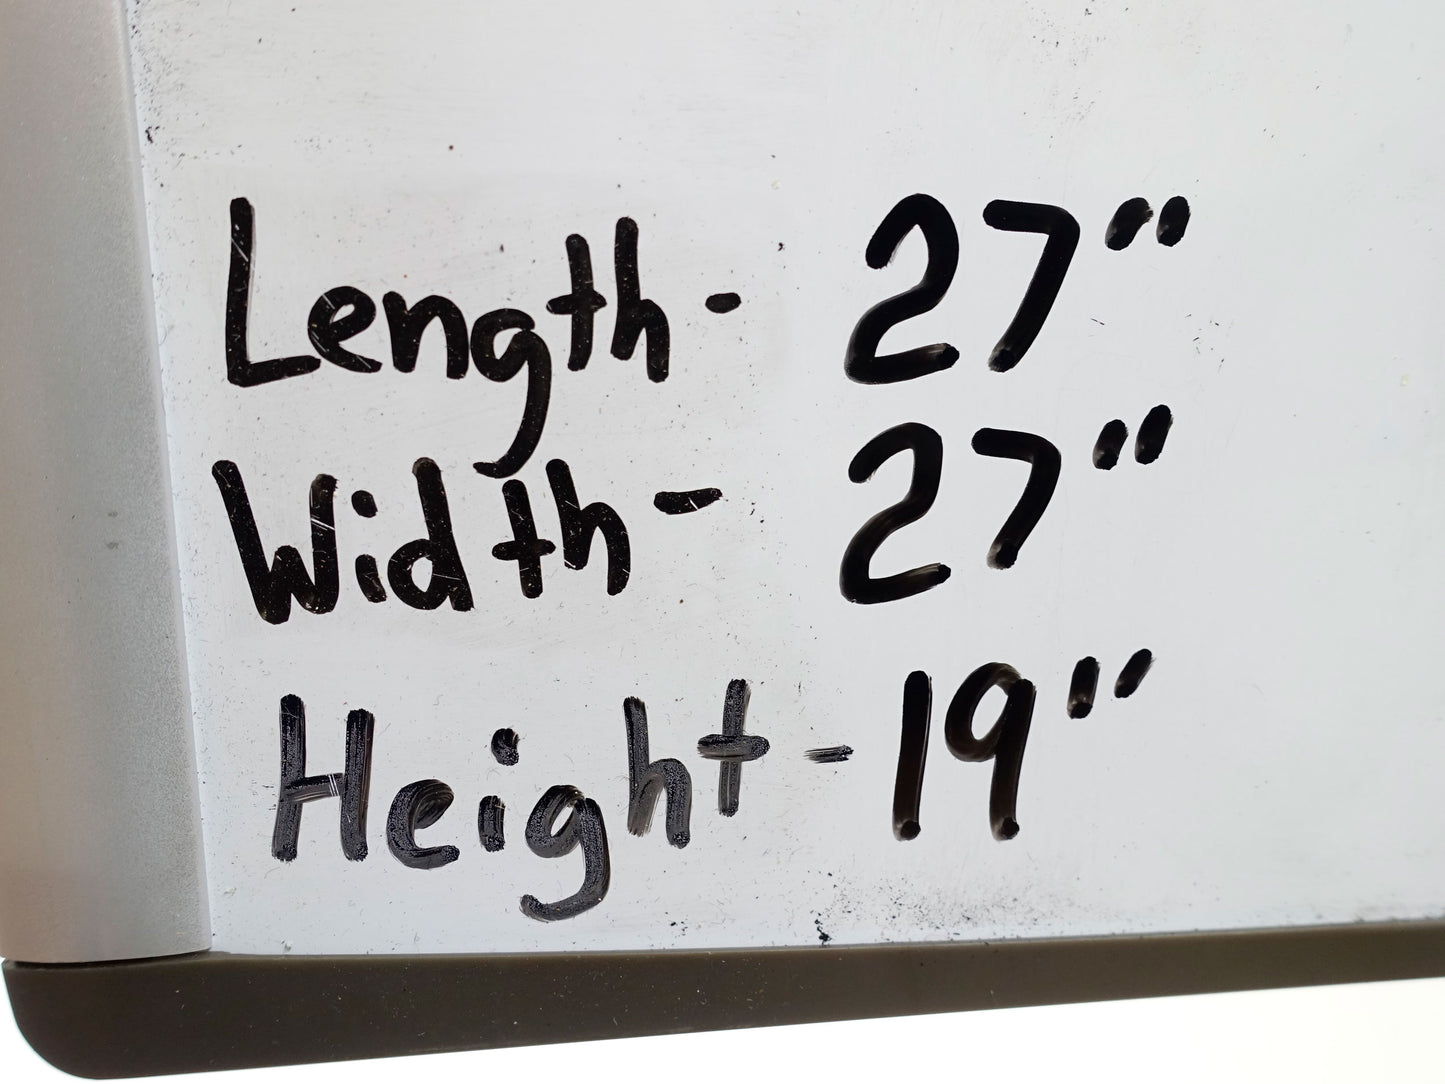 Length - 27"
Width - 27"
Height - 19"